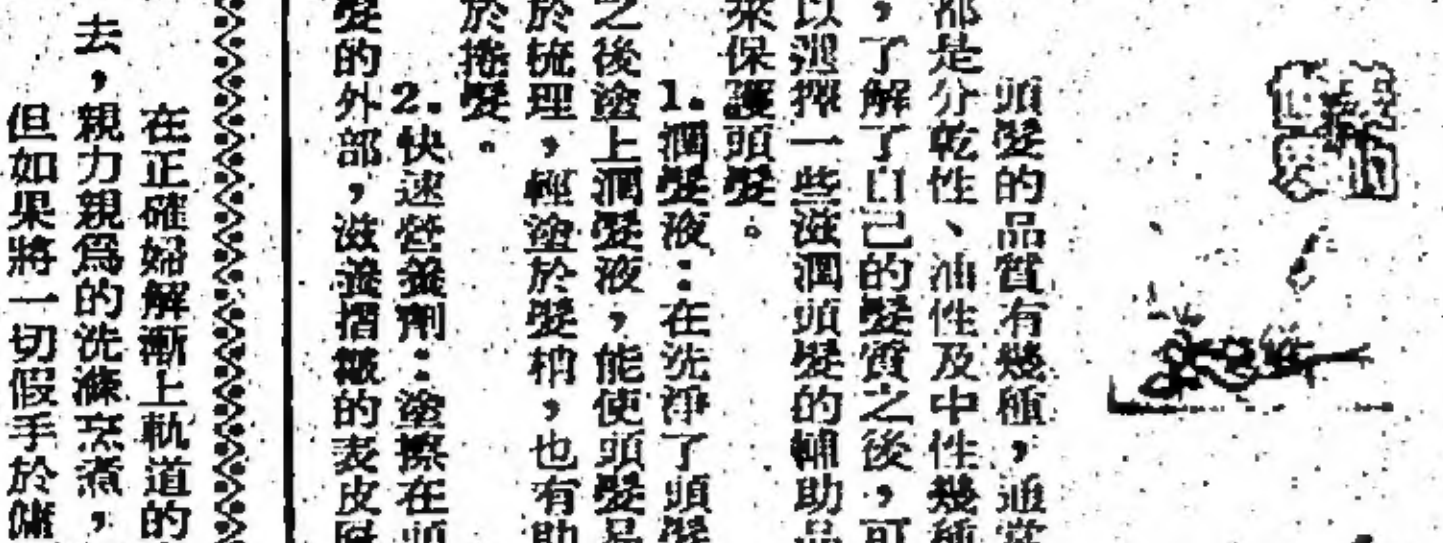 頭髮的品質有幾種，通常
都是分乾性、油性及中性幾種
，了解了自己的髮質之後，可
以選擇一些滋潤頭髮的輔助品
來保護頭髮。
1.潤髮液：在洗淨了頭髮
之後塗上潤髮液，能使頭髮易
於梳理，輕塗於髮梢，也有助
於捲髮。
2.快速營養劑：塗擦在頭
髮的外部，滋養摺皺的表皮層
在正確婦解漸上軌道的
去，親力親爲的洗滌烹煮，
但如果將一切假手於傭